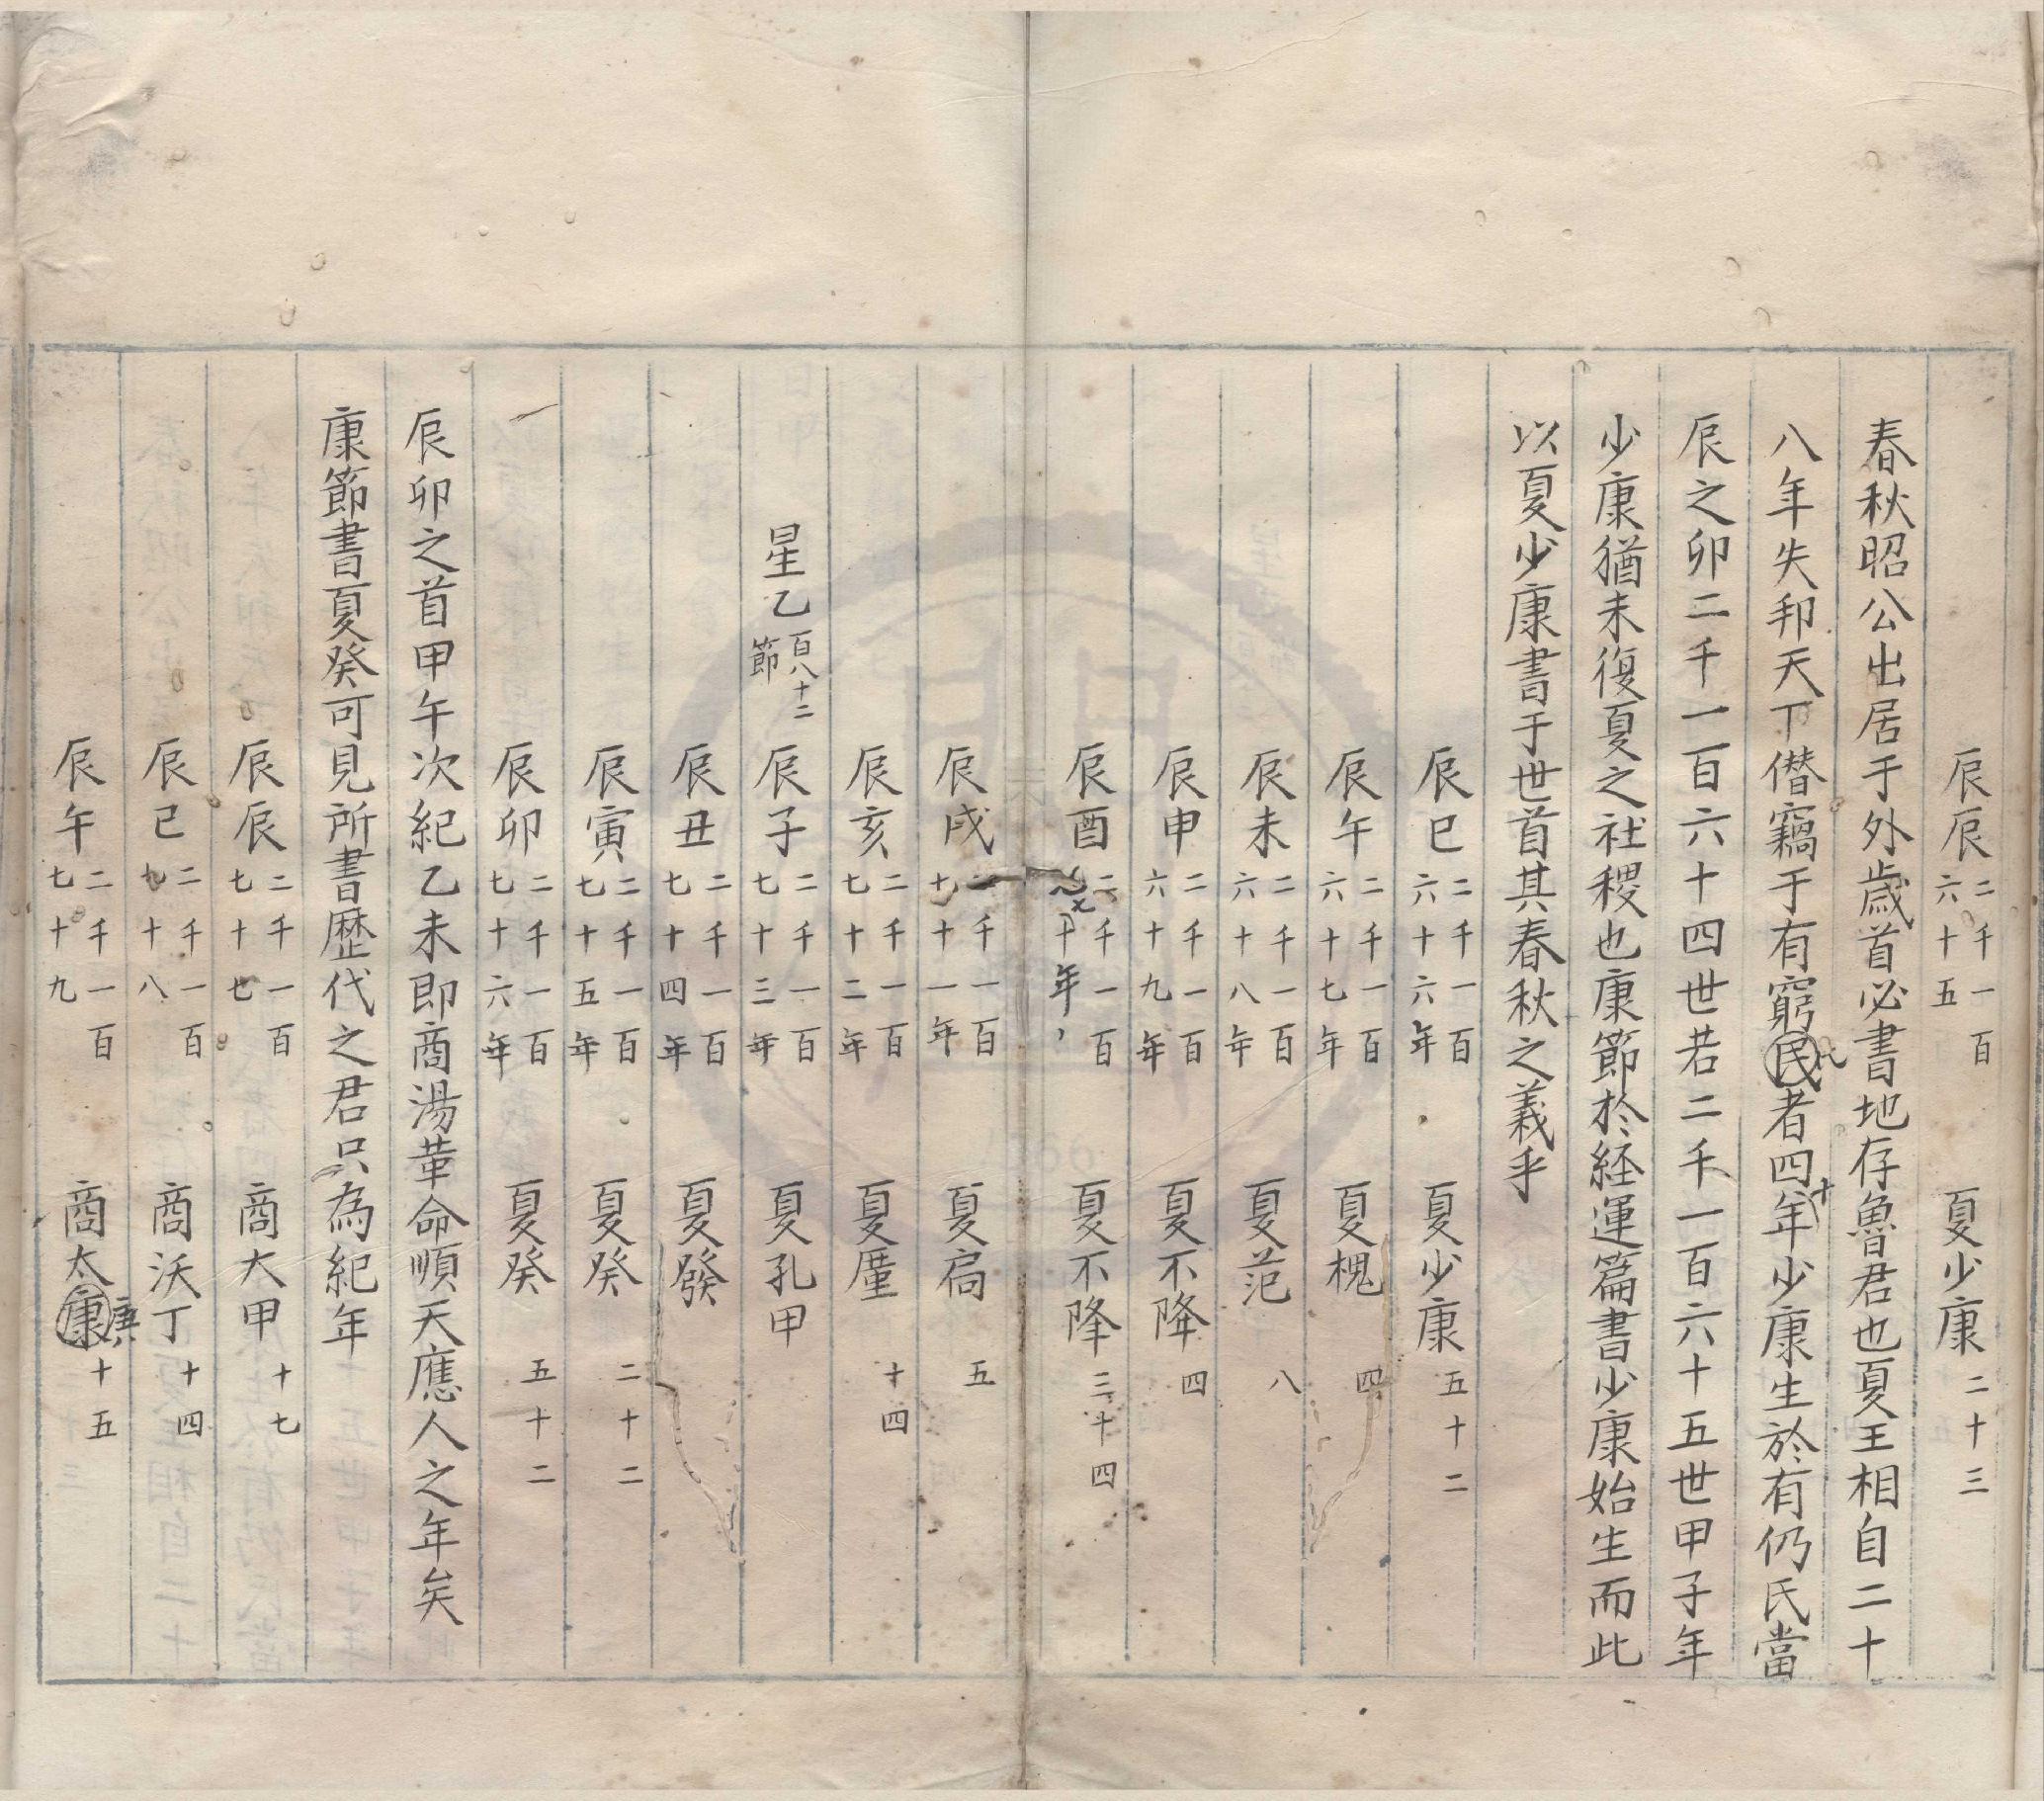 辰辰二千一百六十五 夏少康二十三
春秋昭公出居于外歲首必書地存魯君也夏王相自二十
八年失邦天下僣竊于有窮民氏者四十年少康生於有仍氏當
辰之卯二千一百六十四世若二千一百六十五世甲子年
少康猶未復夏之社稷也康節於経運篇書少康始生而此
以夏少康書于世首其春秋之義乎
辰巳二千一百六十六年 夏少康五十二
辰午二千一百六十七年 夏槐四
辰未二千一百六十八年 夏芒八
辰申二千一百六十九年 夏不降四
辰酉二千一百七十年 夏不降三十四
辰戌二千一百七十一年 夏扃五
辰亥二千一百七十二年 夏廑十四
星乙百八十二節 辰子二千一百七十三年 夏孔甲
辰丑二千一百七十四年 夏發
辰寅二千一百七十五年 夏癸二十二
辰卯二千一百七十六年 夏癸五十二
辰卯之首甲午次紀乙未即商湯革命順天應人之年矣
康節書夏癸可見所書歴代之君只為紀年
辰辰二千一百七十七 商大甲十七
辰巳二千一百七十八 商沃丁十四
辰午二千一百七十九 商太康庚十五